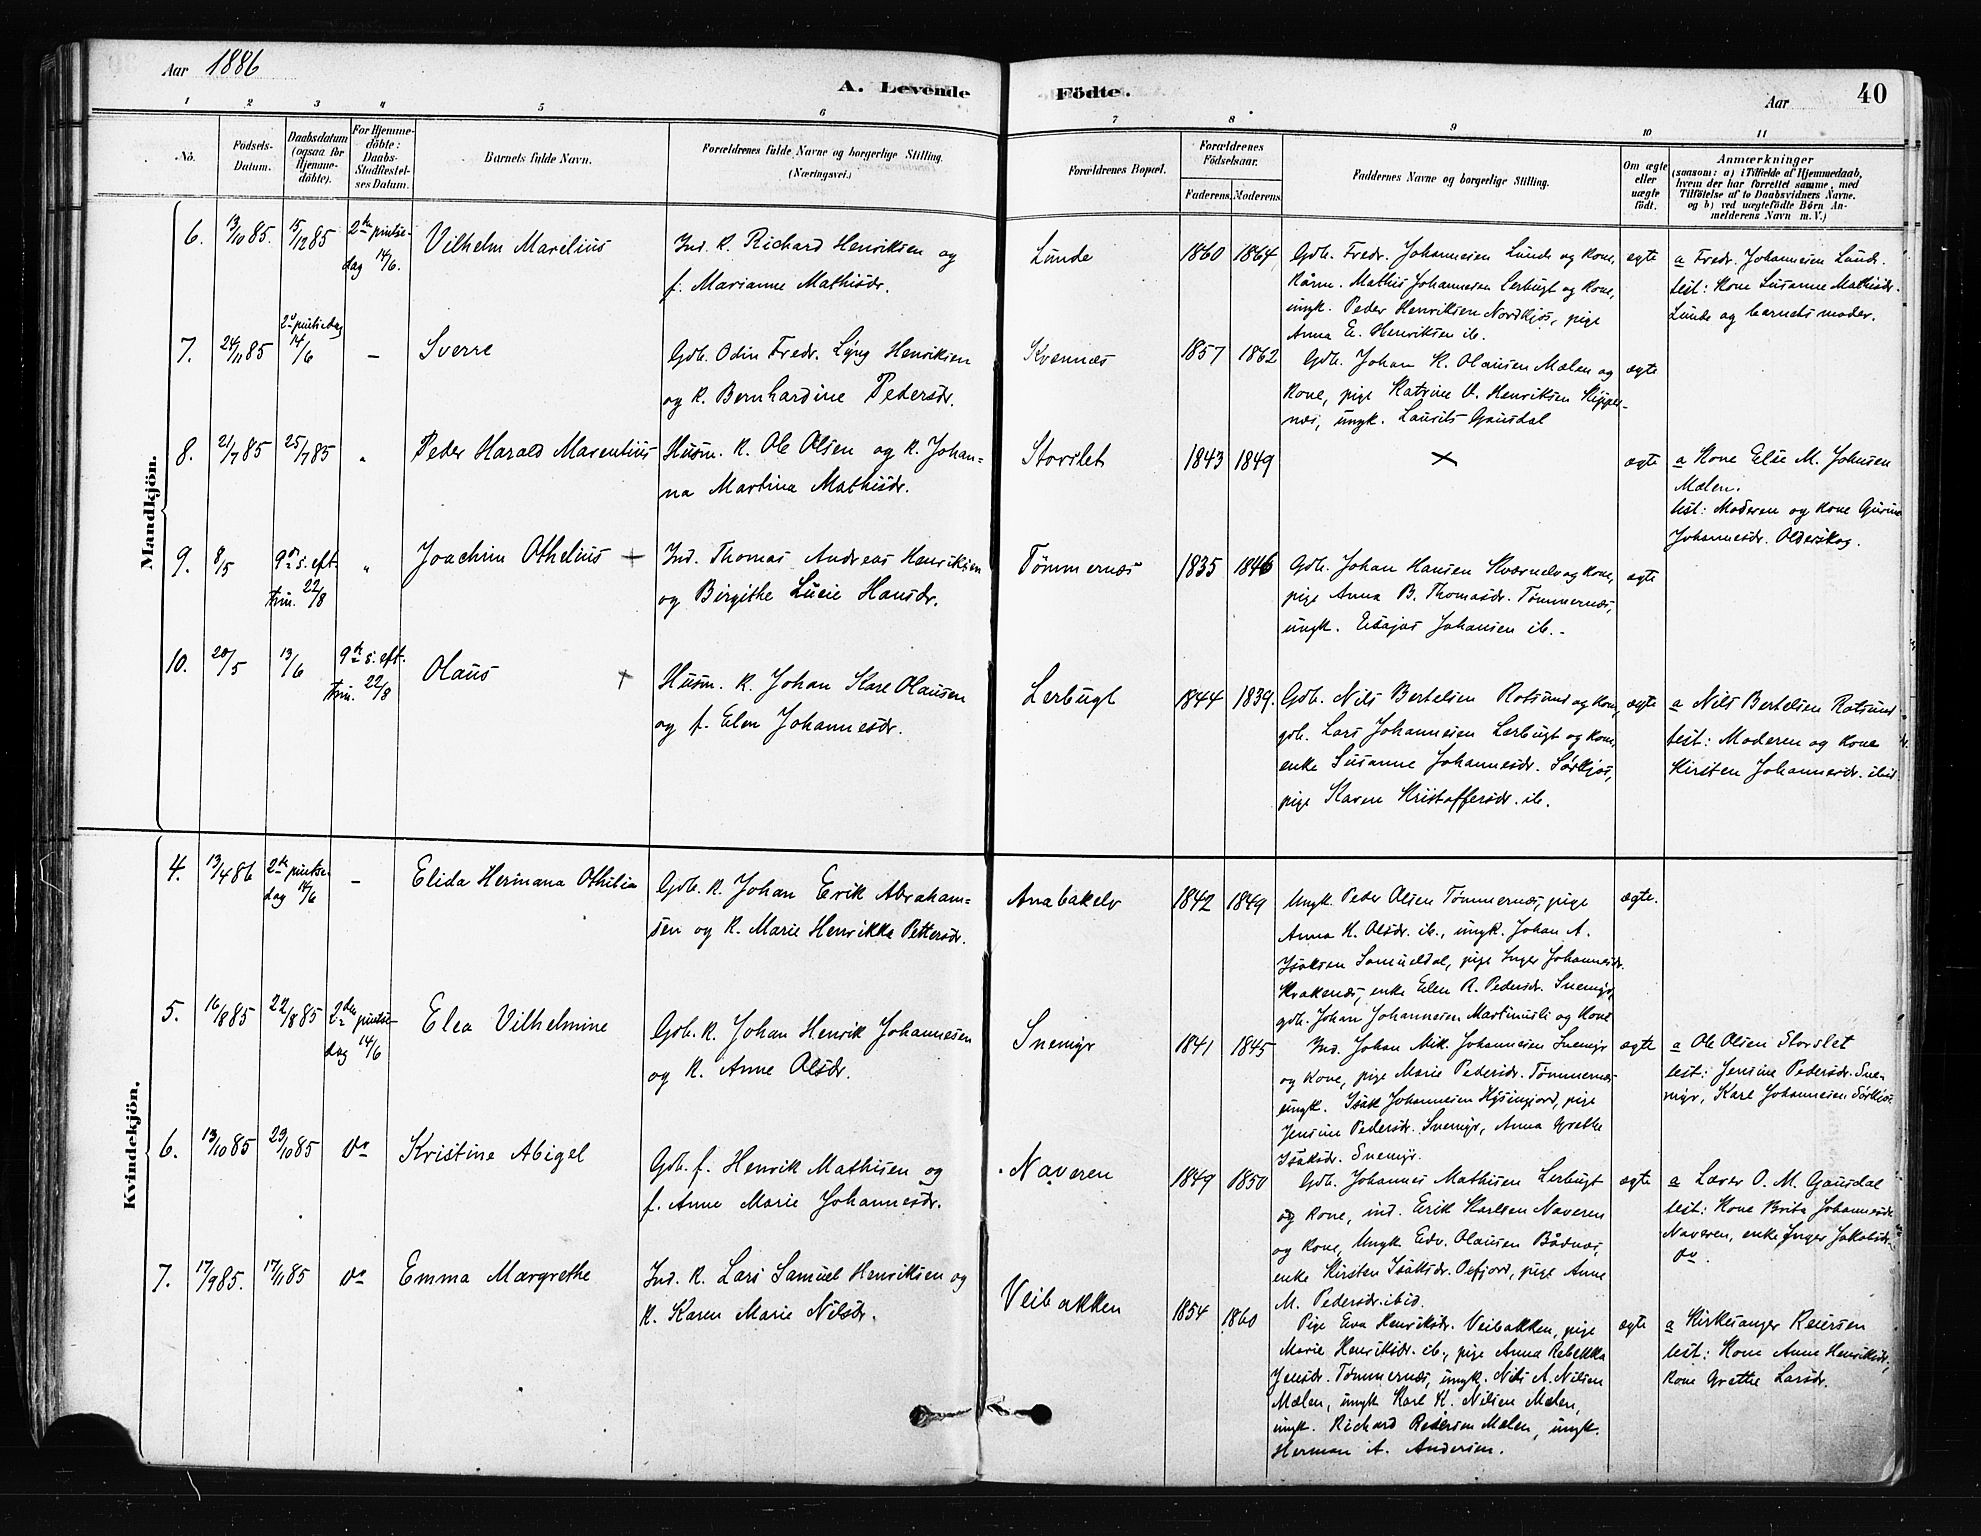 Aar 1886
A. Levende
Fødte.
Aar
40
1
2
3
4
5
6
7
8
9
10
11
No.
Fødsels-
Datum.
Daabsdatum
(ogsaa for
Hjemme-
døbte).
For Hjemme-
døbte:
Daabs-
Stadfæstel-
ses Datum.
Barnets fulde Navn.
Forældrenes fulde Navne og borgerlige Stilling.
(Næringsvei.)
Forældrenes Bopæl.
Forældrenes
Fødselsaar.
Faderens.
Moderens.
Faddernes Navne og borgerlige Stilling.
Om ægte
eller
uægte
født.
Anmærkninger
(saasom: a) i Tilfælde af Hjemmedaab,
hvem der har forrettet samme, med
Tilføielse af to Daabsvidners Navne.
og b) ved uægtefødte Børn An-
melderens Navn m.V.)
Mandkjön.
6.
13/10 85.
15/12 85
2den pintse-
dag 14/6.
Vilhelm Marelius
Ind. K. Richard Henriksen og
f. Marianne Mathisdr.
Lunde
1860
1864
Gdb. Fredr. Johannesen Lunde og kone,
Mathis Johannesen Lerbugt og kone,
ungk. Peder Henriksen Nordkjos, pige
Anna E. Henriksen ib.
ægte
a Fredr. Johannesen Lund.
test: Kone Susanne Mathisdr.
Lunde og barnets moder.
7.
24/11 85
2d pintsedag
14/6
–
Sverre
Gdb. Odin Fredr. Lyng Henriksen
og K. Bernhardine Pedersdr.
Kvænnæs
1857
1862
Gdb. Johan K. Olausen Mælen og
kone, pige Katrine U. Henriksen Skipper-
næs, ungk. Laurits Gausdal
ægte
8.
21/7 85
25/7 85
"
Peder Harald Marentius
Husm. K. Ole Olsen og K. Johan-
na Martina Mathisdr.
Storslet
1843
1849
×
ægte
a Kone Else M. Johnsen
Mælen.
test: Moderen og kone Gurine
Johannesdr. Olderskog.
9.
8/5
9de s. eft.
trin. 22/8
"
Joachim Othelius +
Ind. Thomas Andreas Henriksen
og Birgithe Lucie Hansdr.
Tømmernæs
1835
1846
Gdb. Johan Hansen Kværnelv og kone,
pige Anna B. Thomasdr. Tømmernæs,
ungk. Esajas Johansen ib.
ægte
10.
20/5
13/6
9de s. eft.
trin. 22/8
Olaus +
Husm. K. Johan Karl Olausen
og f. Elen Johannesdr.
Lerbugt
1844
1839.
Gdb. Nils Bertelsen Rotsund og kone,
gdb. Lars Johannesen Lerbugt og kone,
enke Susanne Johannesdr. Sørkjos,
pige Karen Kristoffersdr. ib.
ægte
a Nils Bertelsen Rotsund
test: Moderen og kone
Kirsten Johannesdr. ibid
Kvindekjön.
4.
13/4 86
2den pintse-
dag 14/6
–
Elida Hermana Othilia
Gdb. K. Johan Erik Abraham-
sen og K. Marie Henrikka Pettersdr.
Anabakelv
1842
1849
Ungk. Peder Olsen Tømmernæs, pige
Anna K. Olsdr. ib., ungk. Johan A.
Isaksen Samueldal, pige Inger Johannesdr.
Krakenæs, enke Elen R. Pedersdr. Snemyr,
gdb. Johan Johannesen Martinusli og kone
ægte.
5.
16/8 85
22/8 85
2den pintse-
dag 14/6
Elea Vilhelmine
Gdb. K. Johan Henrik Johannesen
og K. Anne Olsdr.
Snemyr
1841
1845
Ind. Johan Mik. Johannesen Snemyr
og kone, pige Marie Pedersdr. Tømmernæs
ungk. Isak Johannesen Hysingjord, pige
Jensine Pedersdr. Snemyr, Anna Grethe
Isaksdr. Snemyr.
ægte
a Ole Olsen Storslet
test: Jensine Pedersdr. Sne-
myr, Karl Johannesen Sørkjos
6.
13/10 85
23/10 85
do
Kristine Abigel
Gdb. f. Henrik Mathisen og
f. Anne Marie Johannesdr.
Naveren
1849
1850
Gdb. Johannes Mathisen Lerbugt
og kone, ind. Erik Karlsen Naveren
og kone, ungk. Edv. Olausen Bådnæs,
enke Kirsten Isaksdr. Oxfjord, pige Anne
M. Pedersdr. ibid.
ægte
a Lærer O. M. Gausdal
test: Kone Brita Johannesdr.
Naveren, enke Inger Jakobsdr.
do.
7.
17/9 85.
17/11 85
do
Emma Margrethe
Ind. K. Lars Samuel Henriksen og
K. Karen Marie Nilsdr.
Veibakken
1854
1860
Pige Eva Henriksdr. Veibakken, pige
Marie Henriksdr. ib., pige Anna Rebekka
Jensdr. Tømmernæs, ungk. Nils A. Nilsen
Mælen, ungk Karl K. Nilsen Mælen,
ungk. Richard Reiersen Mælen, ungk.
Herman A. Andersen.
ægte
a Kirkesanger Reiersen
test: Kone Anne Henriksdr.,
kone Grethe Larsdr.